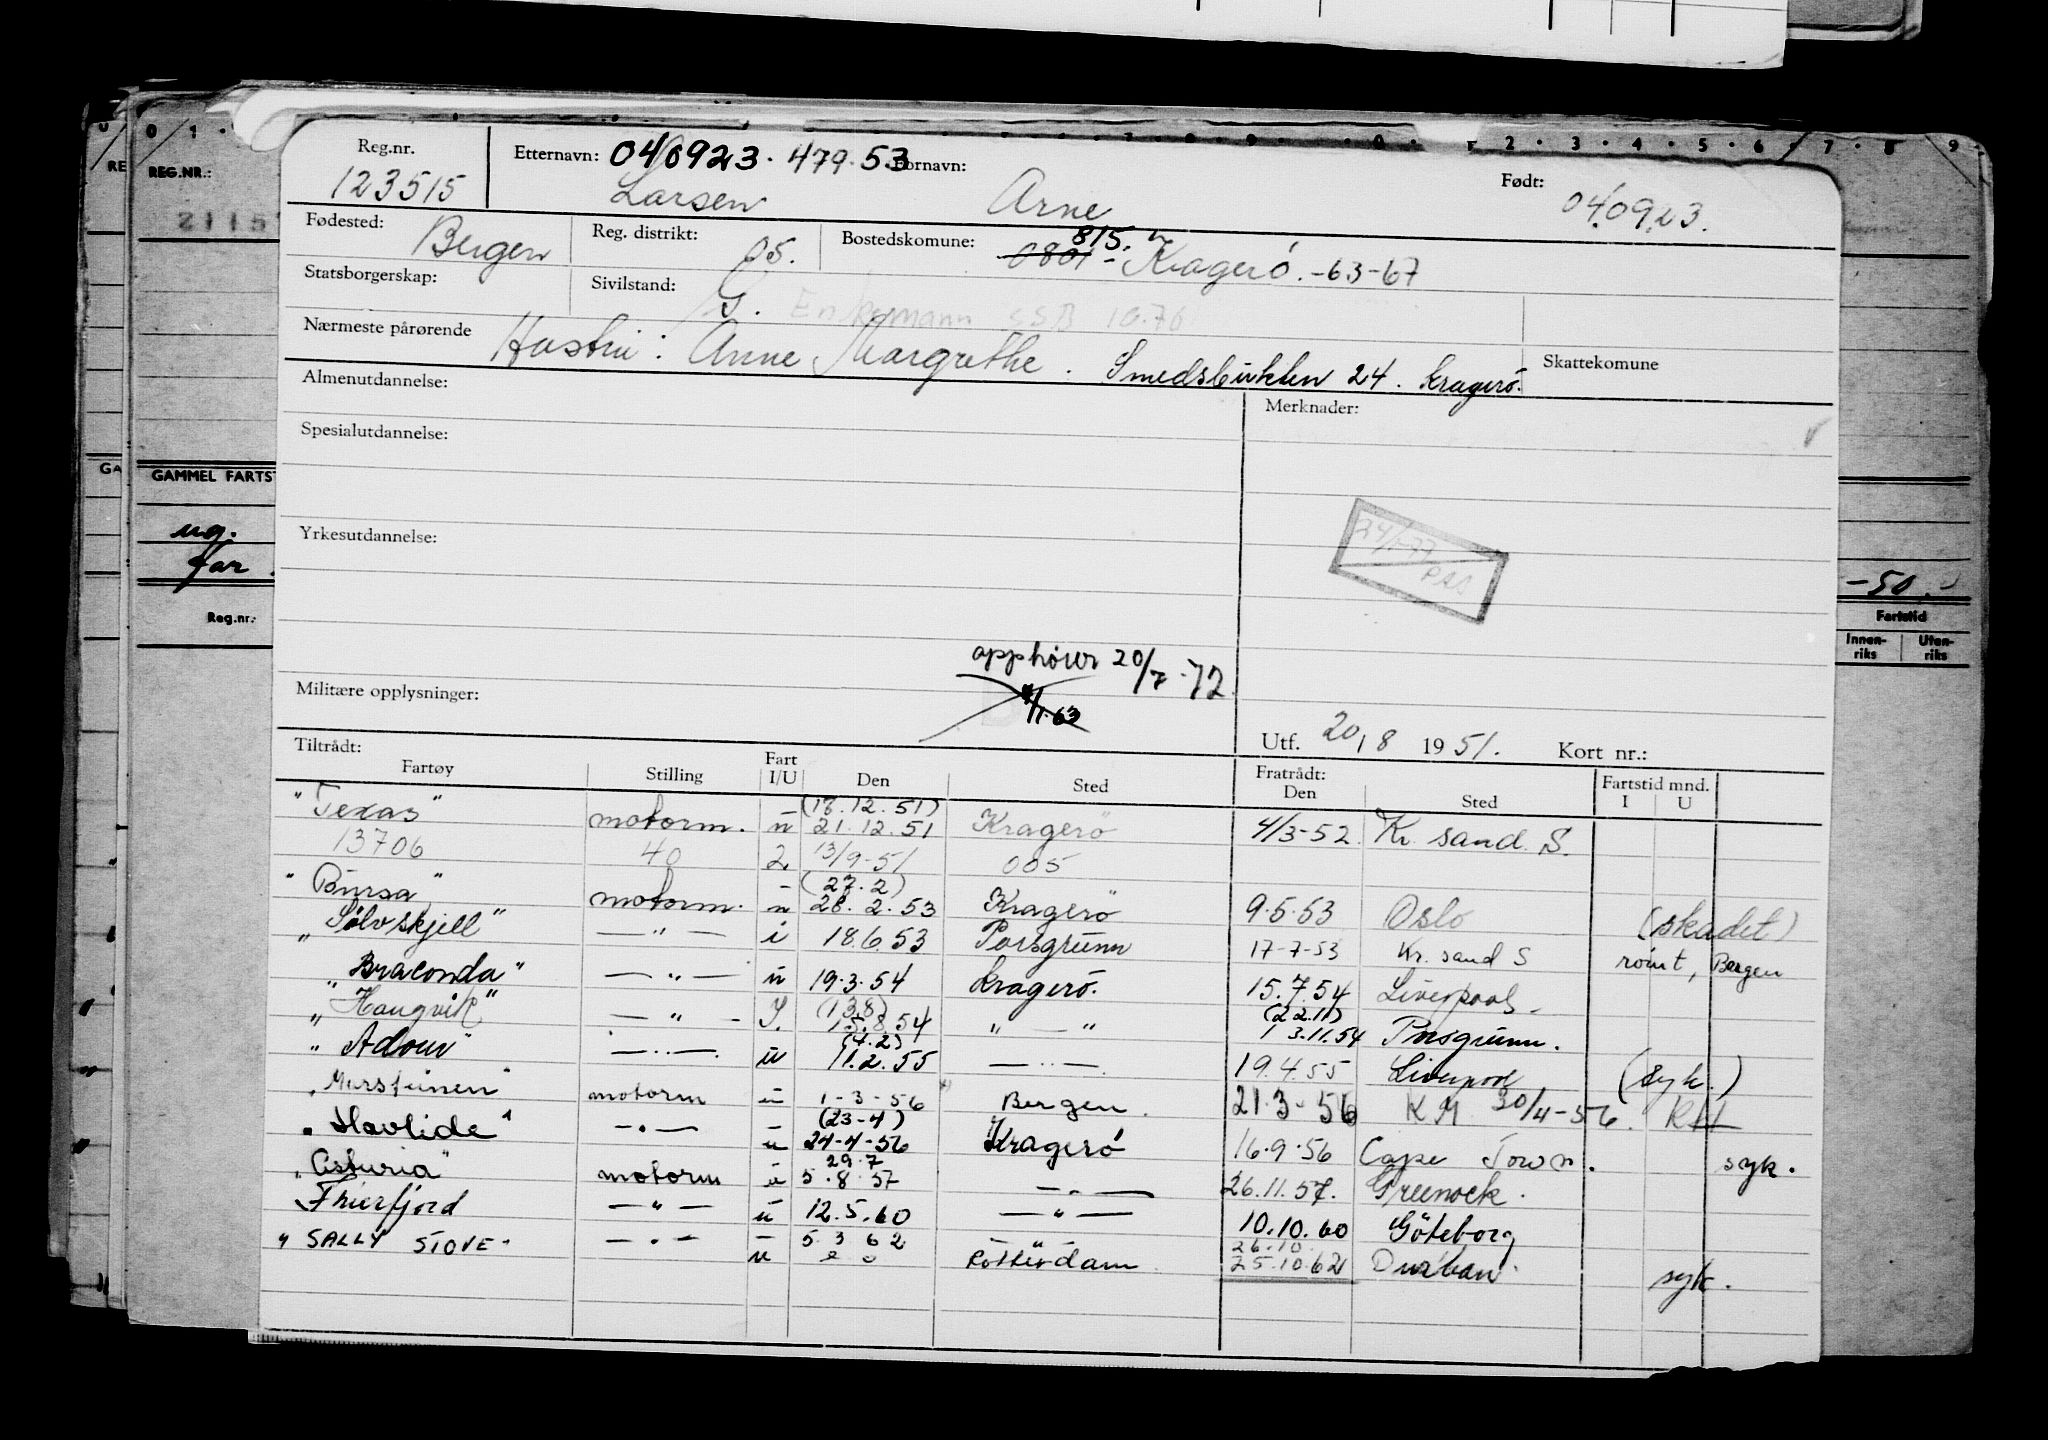 0 1 . 7 . 8 . 9 . 0 . 2 . 3 . 4 . 5 . 6 . 7 . 8 . 9
REG.NR.:
2115
GAMMEL FARTS
ug.
far
Reg.nr.:
-50.-
Fartstid
Innen-riks Uten-riks
Reg.nr. 123515
Etternavn: 040923.479.53 Larsen
Fornavn: Arne
Født: 040923.
Fødested: Bergen
Reg. distrikt: 05.
Bostedskomune: 0801 - 815. Kragerö. -63-67
Statsborgerskap:
Sivilstand: G. Enkemann SSB 10.76
Nærmeste pårørende Hustru: Anne Margrethe. Smedsbukten 24. Kragerö.
Skattekomune
Almenutdannelse:
Merknader:
Spesialutdannelse:
24/1-77
PAS
Yrkesutdannelse:
opphører 20/7-72
Militære opplysninger:
Utf. 20/8 1951. Kort nr.:
Tiltrådt: Fratrådt: Fartstid mnd.
Fartøy Stilling Fart I/U Den Sted Den Sted I U
"Texas" motorm. u (18.12.51) 21.12.51 Kragerö 4/3-52 Kr. sand. S.
13706 40 2 13/9-51 005
"Bursa" motorm. u (27.2) 28.2.53 Kragerö 9.5.53 Oslo (skadet)
"Sölvskjell" — " — i 18.6.53 Porsgrunn 17-7-53 Kr. sand S rømt, Bergen
"Braconda" — " — u 19.3.54 Kragerö. 15.7.54 Liverpool
"Haugvik" — " — I. (13.8) 15.8.54 " — " (22.11) 13.11.54 Porsgrunn.
"Adour" — " — u (4.2) 11.2.55 — " — 19.4.55 Liverpool (syk.)
"Marsteinen" motorm u 1-3-56 Bergen. 21.3-56 K M 30/4-56. RH
"Havlide" — " — u (23-4) 24-4-56 Kragerö 16.9.56 Cape Town. syk.
"Asturia" motorm u 29.7 5.8.57 — " — 26.11.57. Greenock.
Thierfjord — " — u 12.5.60 — " — 10.10.60 Göteborg
"SALLY STOVE" — " — u 5 3 62 Rotterdam 26.10. 25.10.62 Durban. syk.